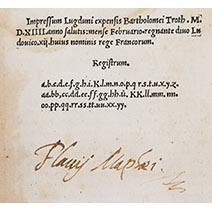 Impressum Lugduni expensis Bartholomei Troth. M.
D.XIII. anno salutis: mense Februario regnante divo Lu
dovico .xij. huius nominis rege Francorum.
Registrum.
a.b.c.d.e.f.g.h.i.K.l.m.n.o.p.q.r.s.t.u.x.y.z.
aa.bb.cc.dd.ee.ff.gg.hh.ii. KK.ll.mm.nn.
oo.pp.qq.rr.ss.tt.uu.xx.yy.